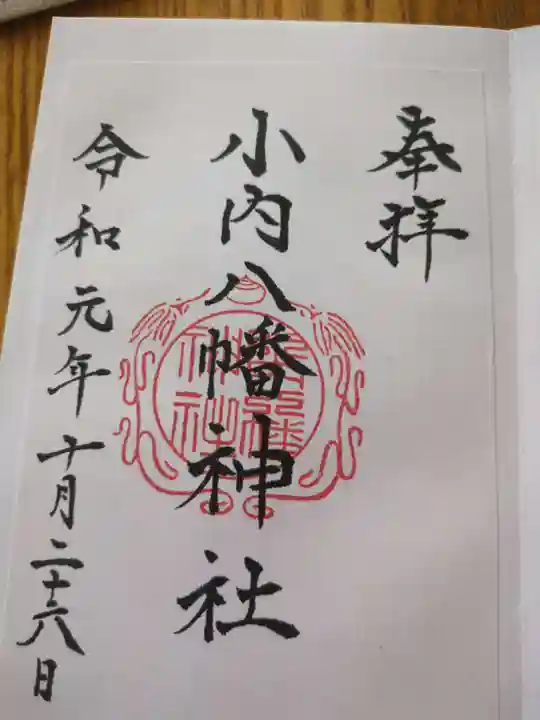 奉拝
小内八幡神社
令和元年十月二十六日